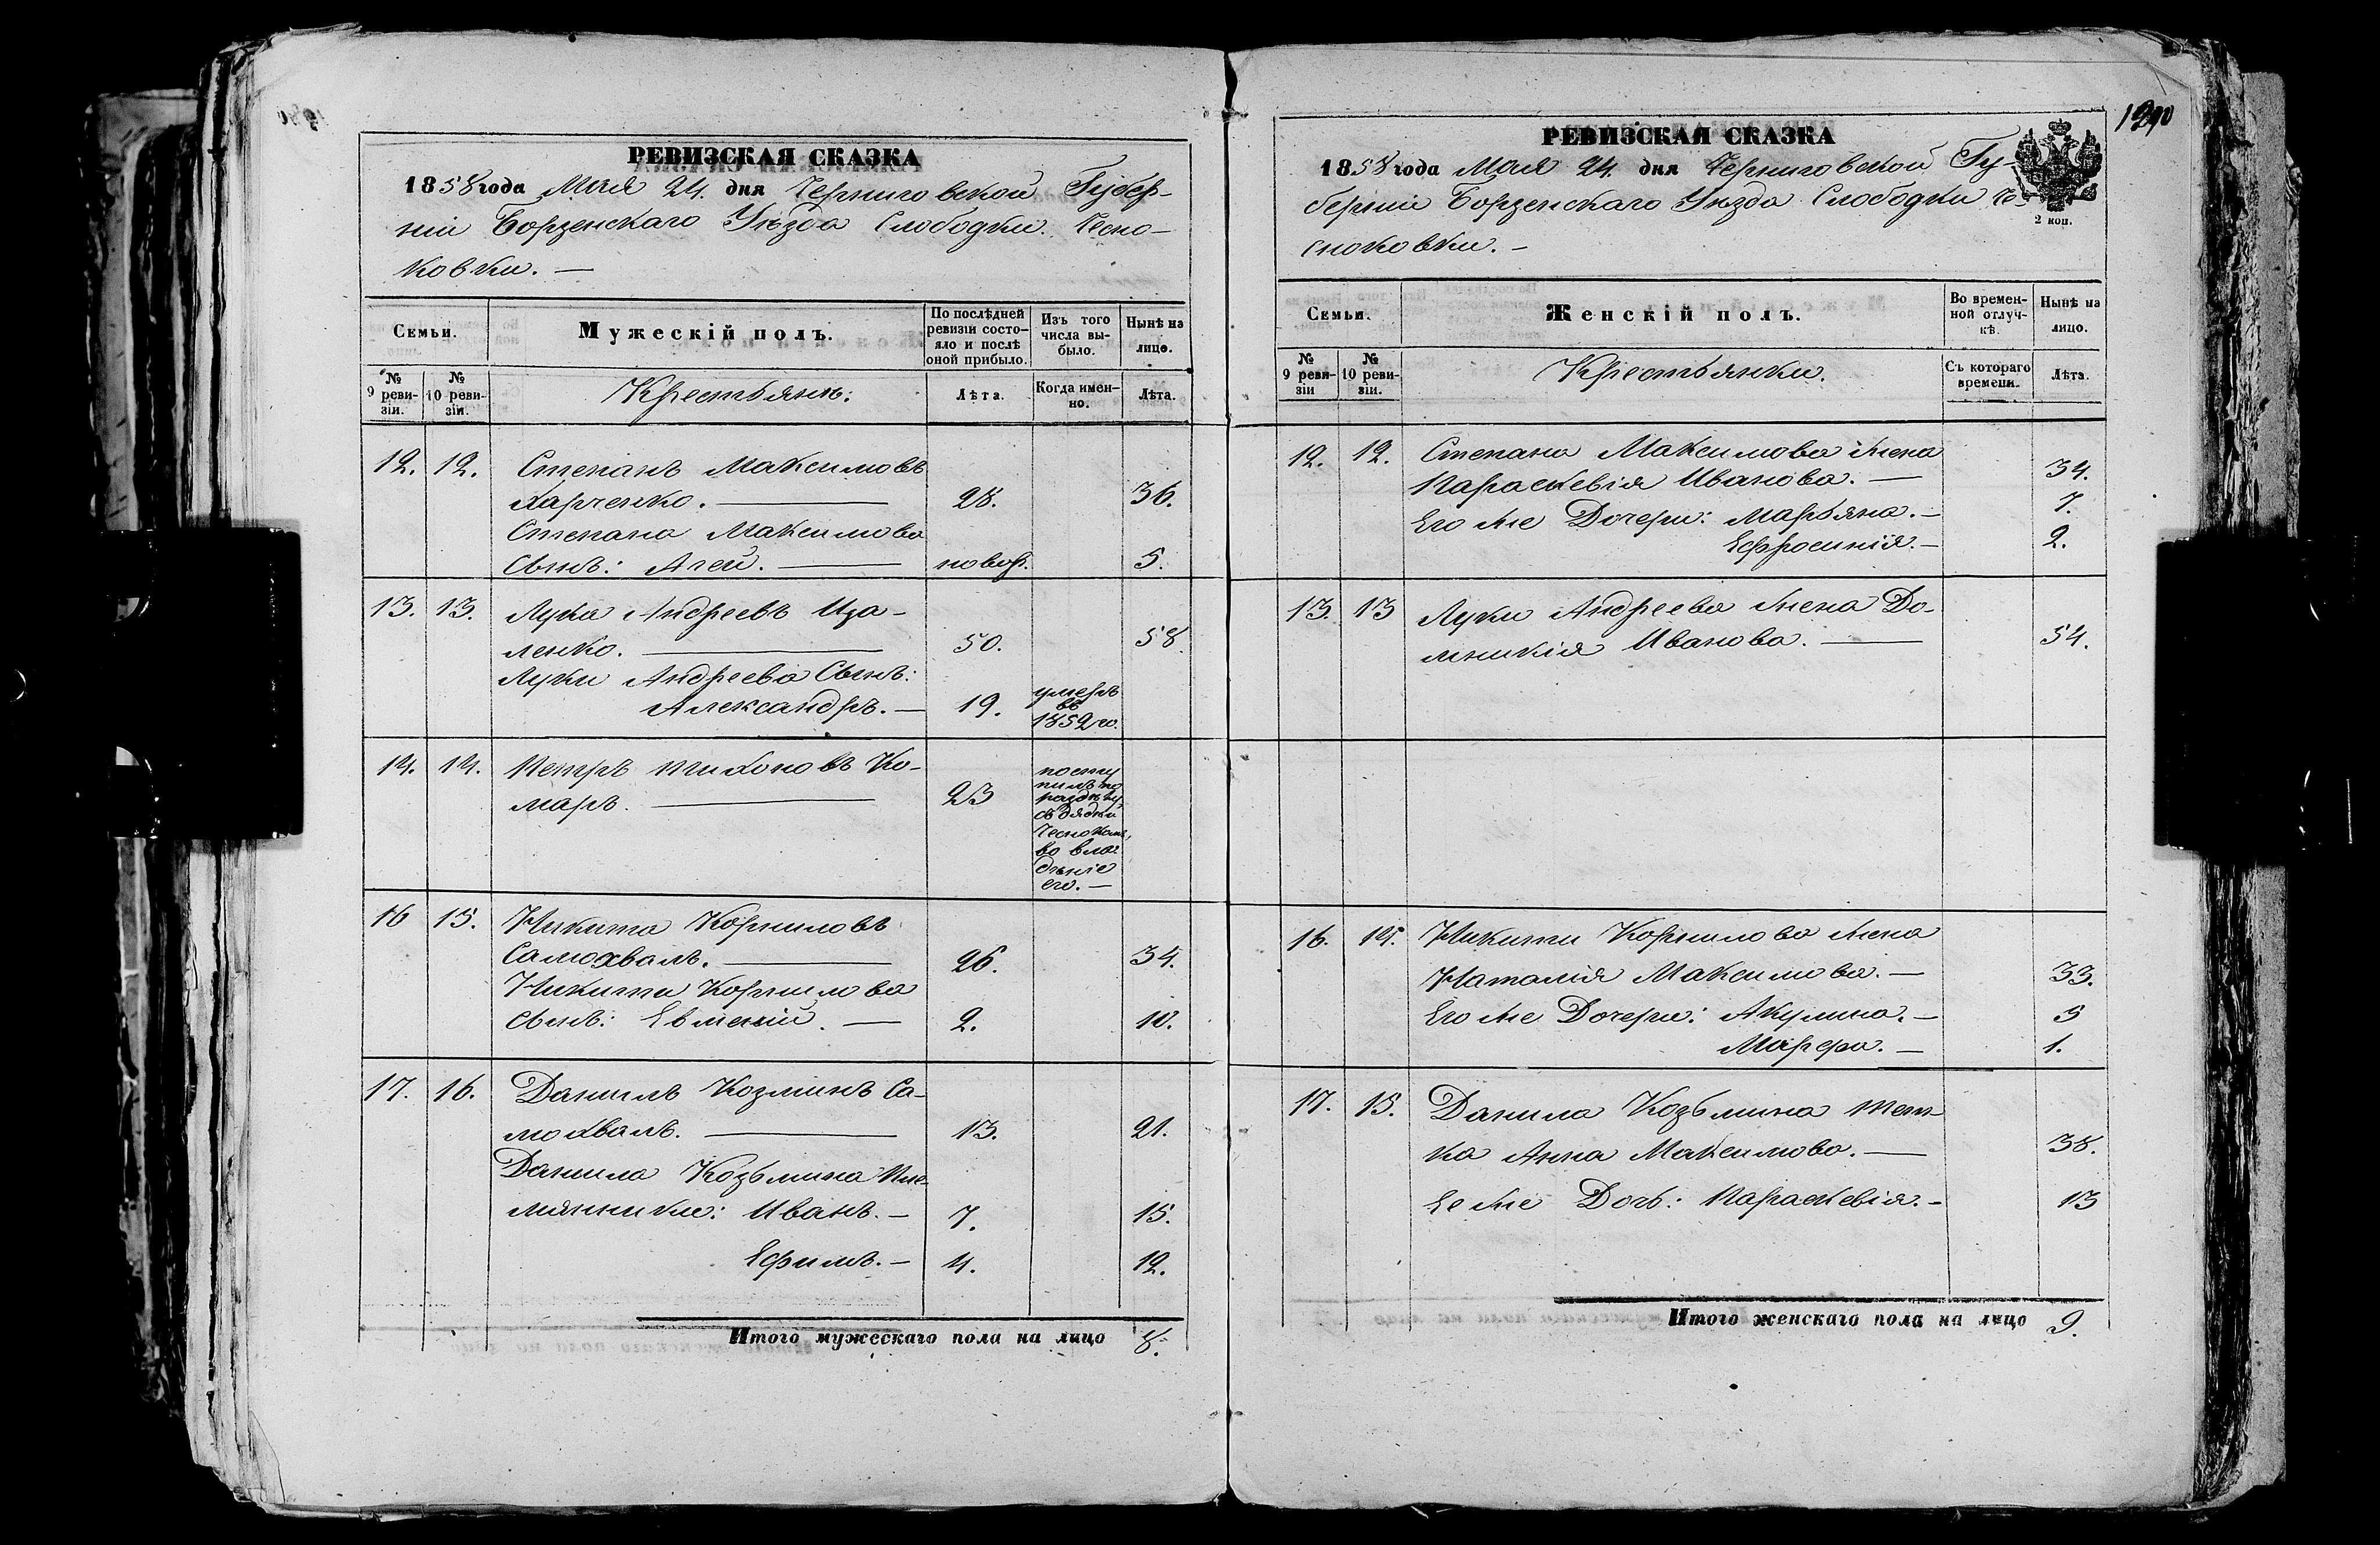 РЕВИЗСКАЯ СКАЗКА
1858 года Мая 24. дня Черниговской Губер-
ніи Борзенскаго Уѣзда Слободки Чесно-
ковки. —
Семьи.
Мужескій полъ.
По послѣдней ревизіи состо-
яло и послѣ
оной прибыло.
Изъ того
числа вы-
было.
Нынѣ на
лицо.
№
9 реви-
зіи.
№
10 реви-
зіи.
Крестьянъ:
Лѣта.
Когда имен-
но.
Лѣта.
12. 12. Степанъ Максимовъ
Харченко. — 28. 36.
Степана Максимова
Сынъ: Агей. — новор. 5.
13. 13. Лука Андреевъ Ица-
ленко. — 50. 58.
Луки Андреева Сынъ:
Александръ. — 19. умеръ
въ
1852 го.
14. 14. Петръ Тихоновъ Ко-
маръ. — 23 посту
пилъ по
раздѣлу
съ дядки
Чеснокомъ,
во вла-
дѣніе
его. —
16 15. Никита Корниловъ
Самохвалъ. — 26. 34.
Никиты Корнилова
Сынъ: Евмений. — 2. 10.
17. 16. Данилъ Козминъ Са-
мохвалъ. — 13. 21.
Данила Козьмина Пле-
мянники: Иванъ. — 7. 15.
Ефимъ. — 4. 12.
Итого мужескаго пола на лицо 8.
1290
РЕВИЗСКАЯ СКАЗКА
1858 года Мая 24. дня Черниговской Гу-
берніи Борзенскаго Уѣзда Слободки Че-
сноковки. —
2 коп.
Семьи.
Женскій полъ.
Во времен-
ной отлуч-
кѣ.
Нынѣ на
лицо.
№
9 реви-
зіи
№
10 реви-
зіи.
Крестьянки.
Съ котораго
времени.
Лѣта.
12. 12. Степана Максимова Жена
Параскевія Иванова. — 34.
Его же Дочери: Марьяна. — 7.
Ефросинія. — 2.
13. 13 Луки Андреева Жена До-
мникія Иванова. — 54.
16. 14. Никиты Корнилова Жена
Наталія Максимова. — 33.
Его же Дочери: Акулина. — 5
Марфа. — 1.
17. 15. Данила Козьмина тет-
ка Анна Максимова. — 38.
Ее же Дочь: Параскевія. — 13
Итого женскаго пола на лицо 9.